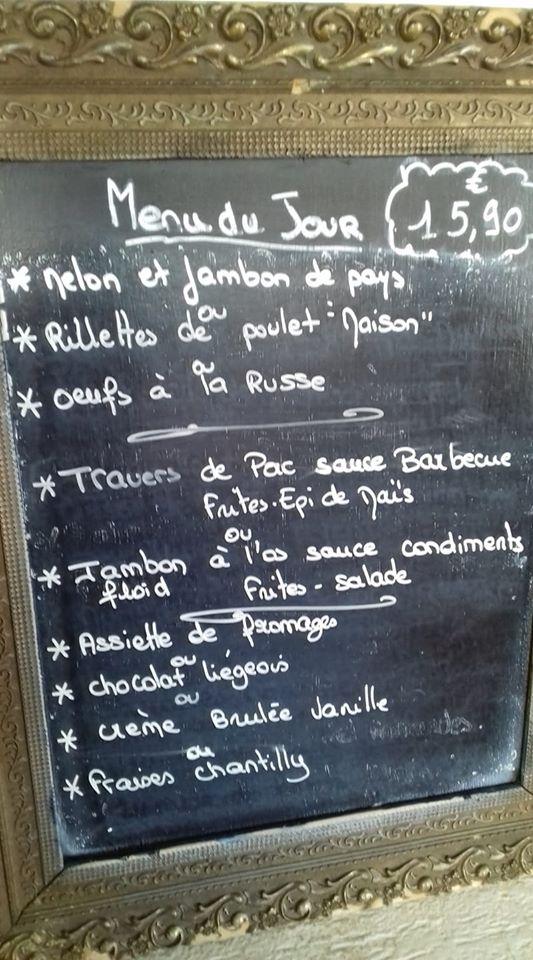 Menu du Jour
€
15,90
* Melon et Jambon de pays
ou
* Rillettes de poulet "Maison"
ou
* Oeufs à la Russe
* Travers de Porc sauce Barbecue
Frites. Epi de Maïs
ou
* Jambon à l'os sauce condiments
froid Frites - salade
* Assiette de fromages
ou
* chocolat liégeois
ou
* crème Brulée Vanille
ou
* fraises chantilly